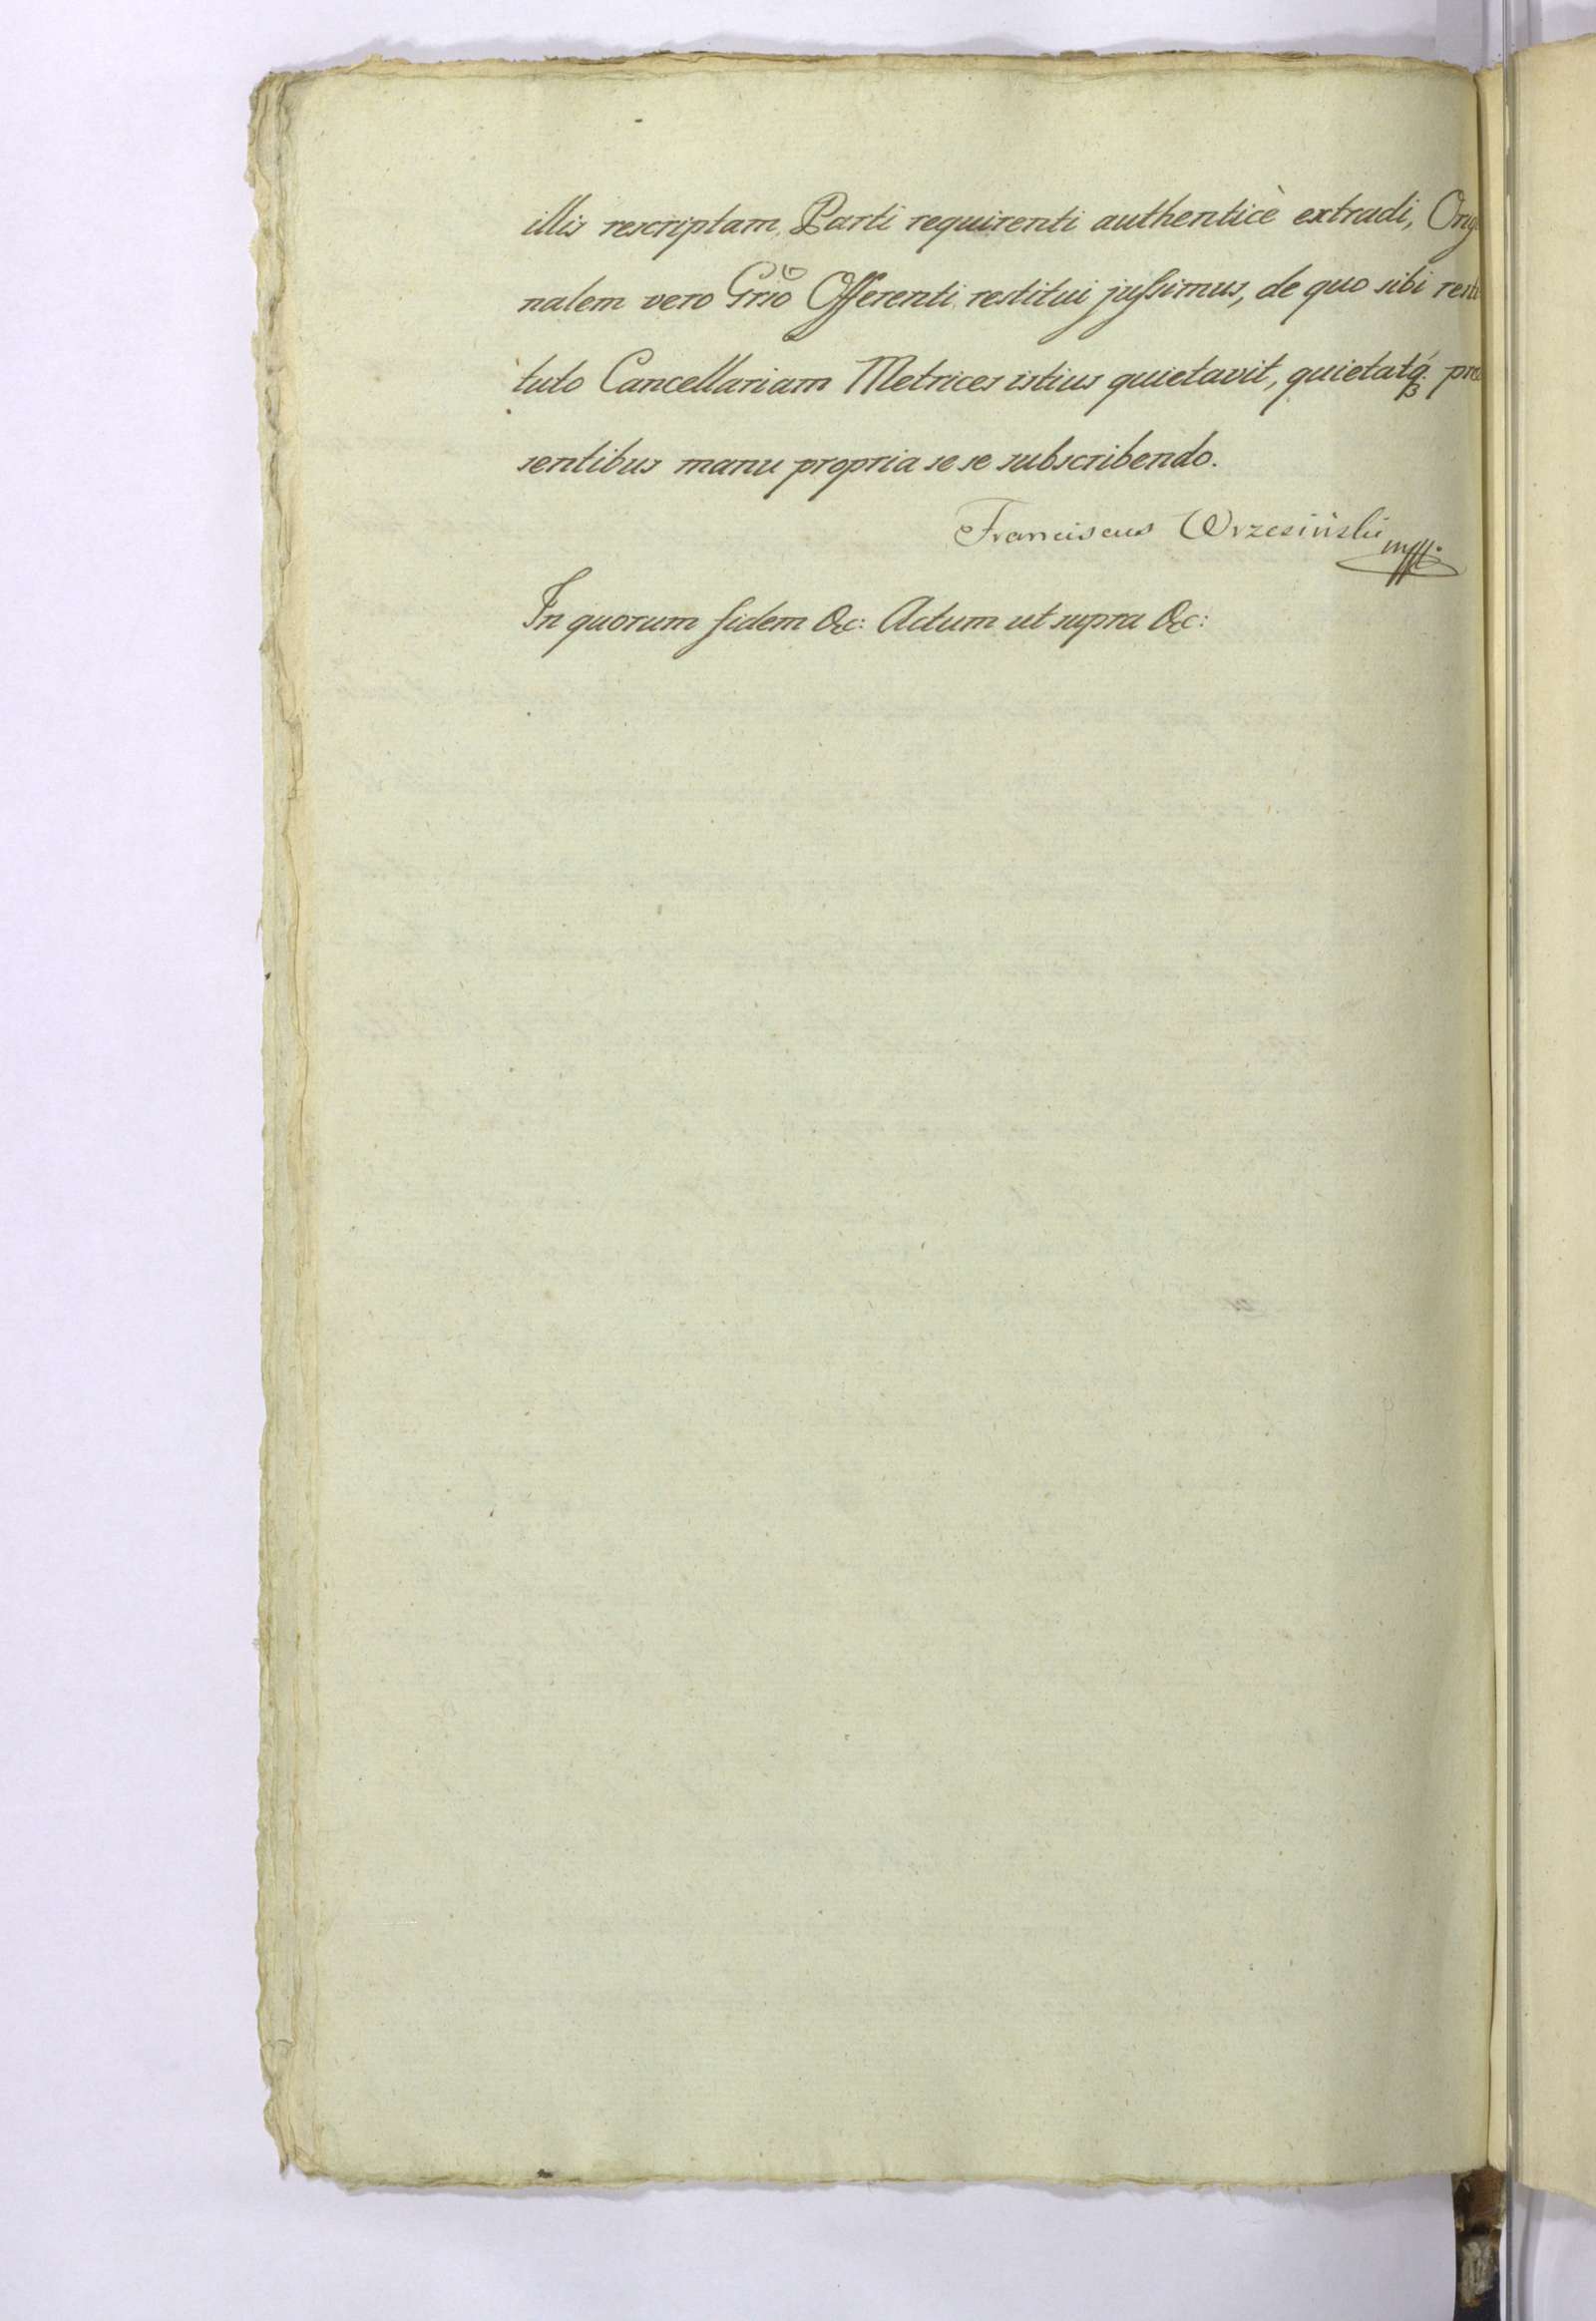 illis rescriptam, Parti requirenti authenticè extradi, Ori
nalem vero Grsō Offerenti restitui jussimus, de quo sibi resti
tuto Cancellariam Metrices istius quietavit, quietatq́ʒ præ
sentibus manu propria se se subscribendo.
Franciscus Wrzesiński mpp.
In quorum fidem &c: Actum ut supra &c: